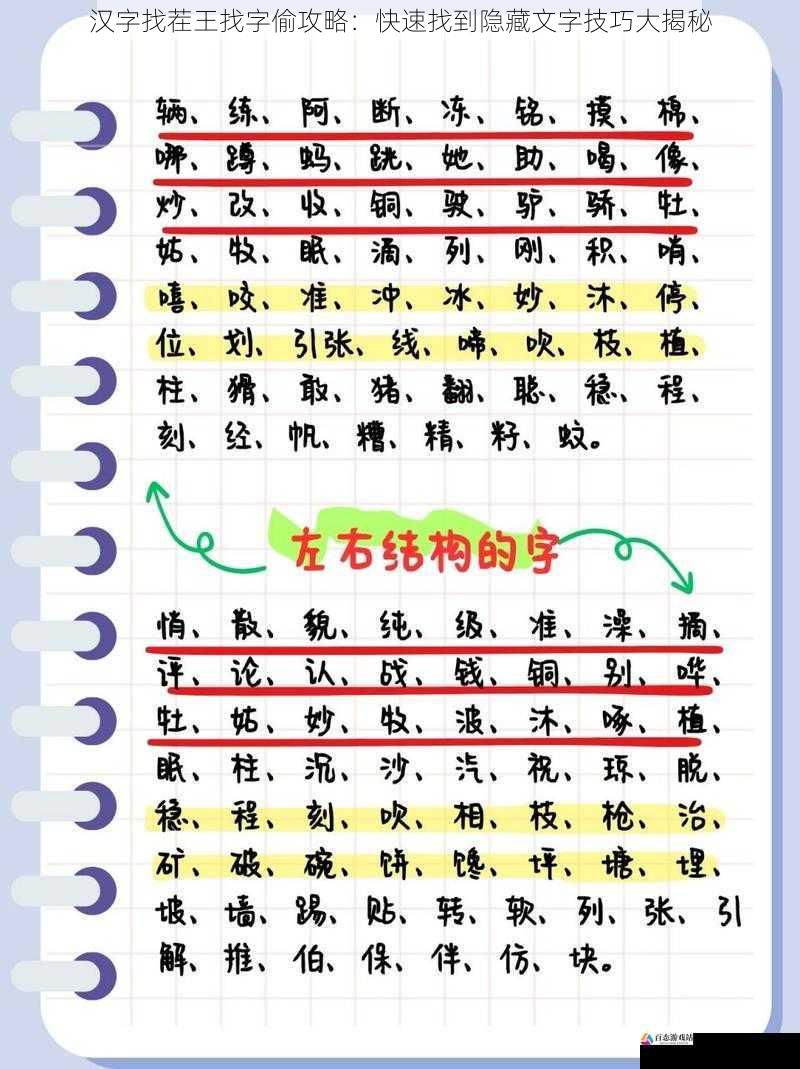 汉字找茬王找字偷攻略：快速找到隐藏文字技巧大揭秘
辆、练、阿、断、冻、铭、摸、棉、
哪、蹲、蚂、跳、她、助、喝、像、
炒、改、收、铜、驶、驴、骄、牡、
姑、牧、眠、滴、列、刚、积、哨、
嘻、咬、准、冲、冰、妙、沐、停、
位、划、引张、线、啼、吹、枝、植、
柱、猾、敢、猪、翻、聪、稳、程、
刻、经、帆、糟、精、籽、蚊。
左右结构的字
悄、散、貌、纯、级、准、澡、摘、
评、论、认、战、钱、铜、别、哗、
牡、姑、妙、牧、波、沐、啄、植、
眠、柱、沉、沙、汽、祝、琼、脱、
稳、程、刻、吹、相、枝、枪、治、
矿、破、碗、饼、馋、坪、塘、埋、
坡、墙、踢、贴、转、软、列、张、引
解、推、伯、保、伴、仿、块。
百态游戏站